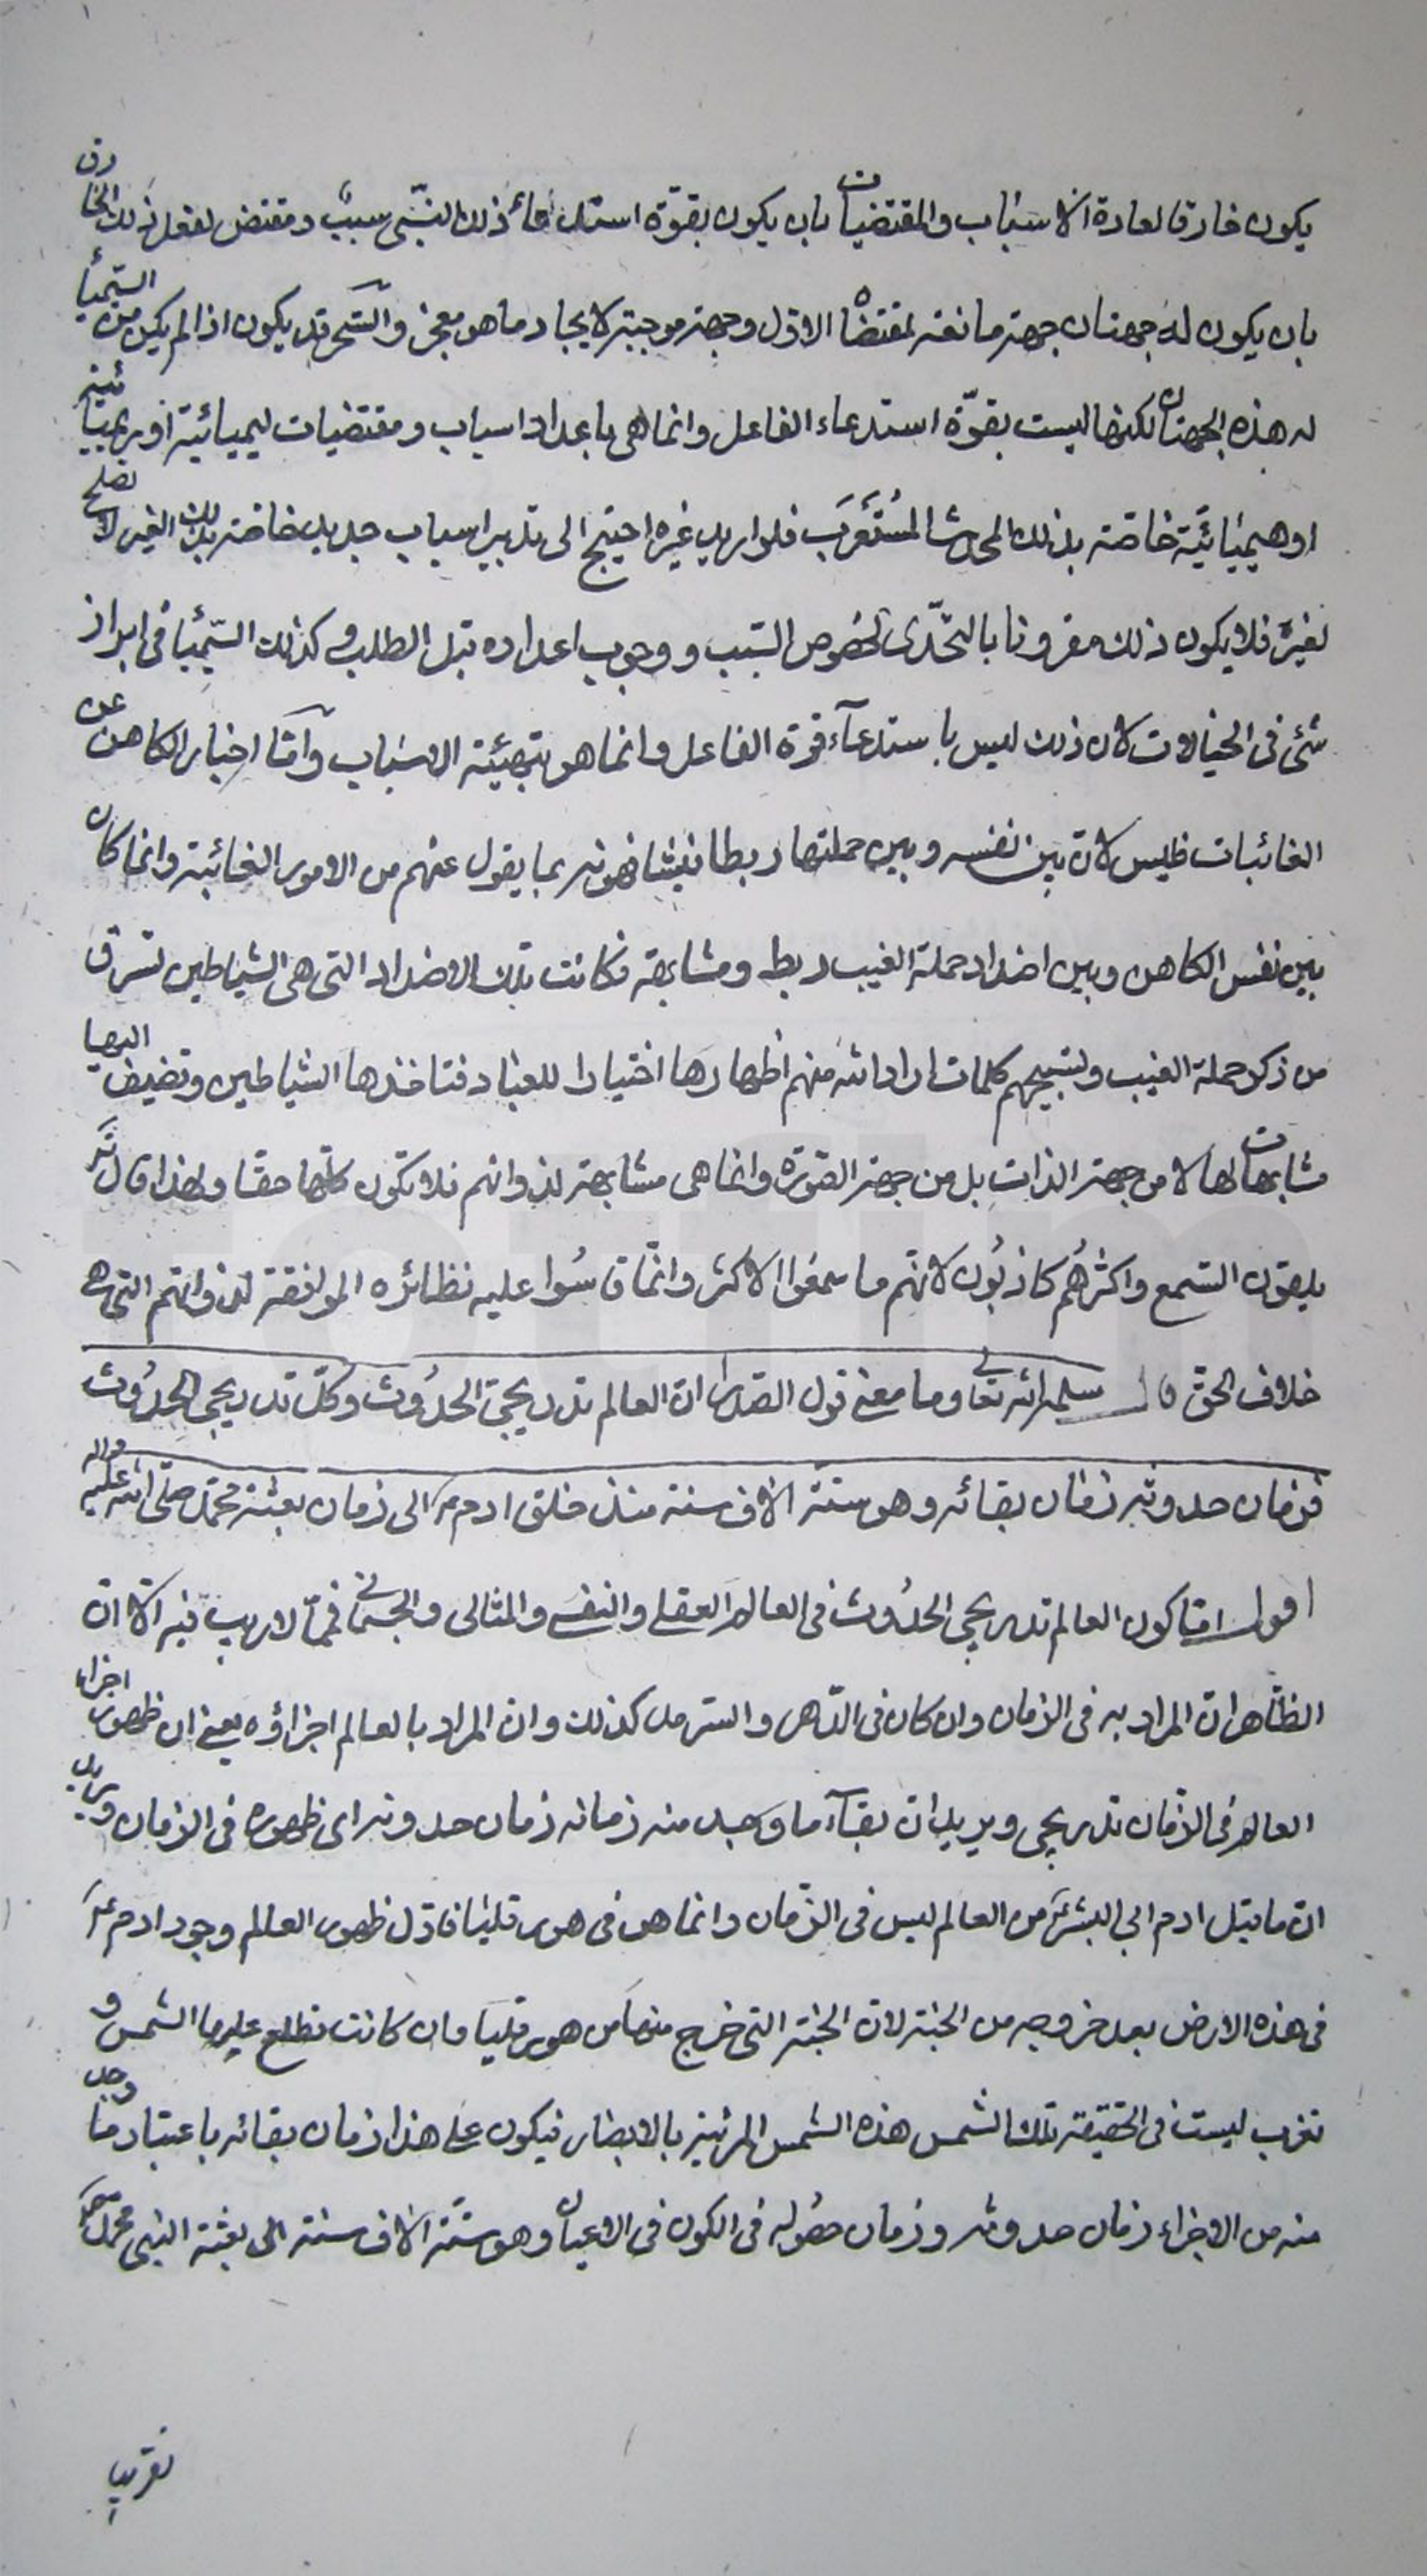 يكون خارقا لعادة الاسباب والمقتضيات بان يكون بقوّة استدعاء ذلك النبّى سببٌ ومقتض لفعل ذلك الخارق
بان يكون له جهتان جهة مانعة لمقتضاه الاوّل وجهة موجبة لايجاد ما هو معجز والسّحر قد يكون اذا لم يكن من السّيميا
له هذه الجهتان لكنها ليست بقوّة استدعاء الفاعل وانما هى باعداد اسباب ومقتضيات ليميائية او ريميائية
او هيميائيّة خاصّة بذلك المحدث المُستَغرَب فلو اريد غيره احتيج الى تدبير اسباب جديدة خاصّة بذلك الغير لا تصلح
لغيره فلا يكون ذلك مقرونا بالتحّدى لخصُوص السّبب ووجوب اعداده قبل الطلب وكذلك السّيميا فى ابراز
شئ فى الخيالات لان ذلك ليس باستدعآء قوة الفاعل وانما هو بتهيئة الاسباب وامّا اخبار الكاهن عن
الغائبات فليس لانّ بين نفسه وبين حملتها ربطا بما يقول عنهم من الامور الغائبة وانما كان
بين نفس الكاهن وبين اضداد حملة الغيب ربط ومشابهة فكانت تلك الاضداد التى هى الشياطين تسرق
من ذكر حملة الغيب وتسبيحهم كلمات اراد الله منهم اظهارها اختبارا للعباد فتاخذها الشياطين وتضيف اليها
مشابهات لها لا من جهة الذات بل من جهة الصّورة وانما هى مشابهة لذواتهم فلا تكون كلّها حقّا ولهذا قال تعَ
يلقون السّمع واكثرُهُم كاذبُون لانّهم ما سمعُوا الاكثر وانّما قاسُوا عليه نظائره الموافقة لذواتهم التى هى
خلاف الحق قال سلمه الله تعالى وما معنى قول الصّدرا انّ العالم تدريجىّ الحدُوث وكلّ تدريجى الحدُوث
فزمان حدوثه زمان بقائه وهو ستّة الاف سنة منذ خلق ادمؑ الى زمان بعثة محمّد صلّى الله عليه واله
اقول امّا كون العالم تدريجى الحدُوث فى العالم العقلى والنفسى والمثالى والجسمانى فممّا لا ريب فيه الّا انّ
الظّاهر انّ المراد به فى الزمان وان كان فى الدّهر والسّرمد كذلك وان المراد بالعالم اجزاؤه يعنى ان ظهور اجزاء
العالم فى الزّمان تدريجى ويريد انّ بقاءَ ما وجد منه زمانه زمان حدوثه اى ظهوره فى الزمان ويريد
انّ ما قبل ادم ابى البشرؑ من العالم ليس فى الزّمان وانما هو فى هورقليا فاوّل ظهور العالم وجود ادمؑ
فى هذه الارض بعد خروجه من الجنّة لانّ الجنّة التى خرج منها من هورقليا وان كانت تطلع عليها الشمس و
تغرب ليست فى الحقيقة تلك الشمس هذه الشمس المرئية بالابصار فيكون على هذا زمان بقائه باعتبار ما وجد
منه من الاجزاء زمان حدوثه وزمان حصُوله فى الكون فى الاعيان وهو ستّة الاف سنة الى بعثة النبى محمّد
تقريبا